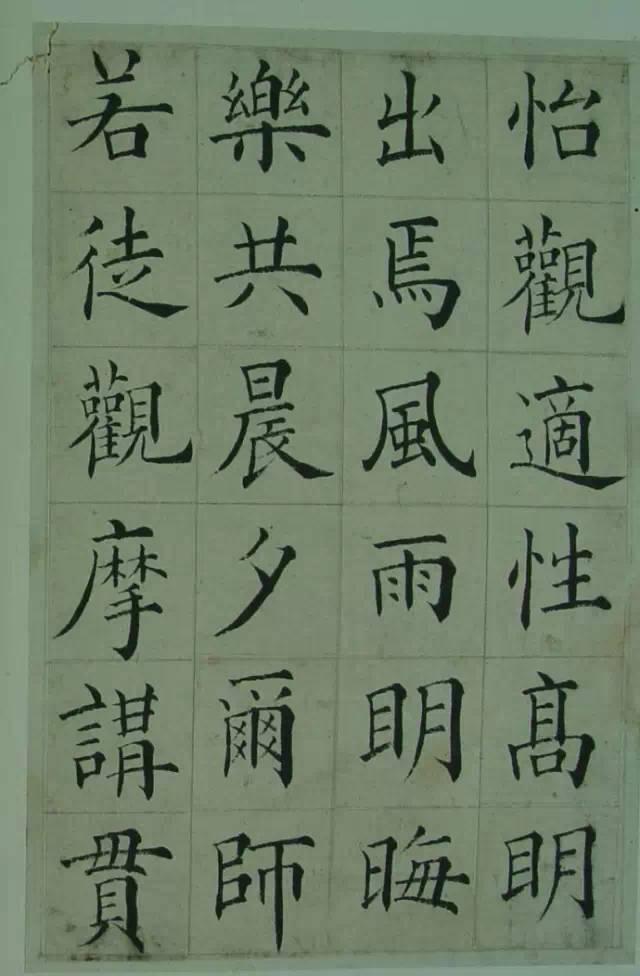 怡觀適性髙明
出焉風雨明晦
樂共晨夕爾師
若徒觀摩講貫